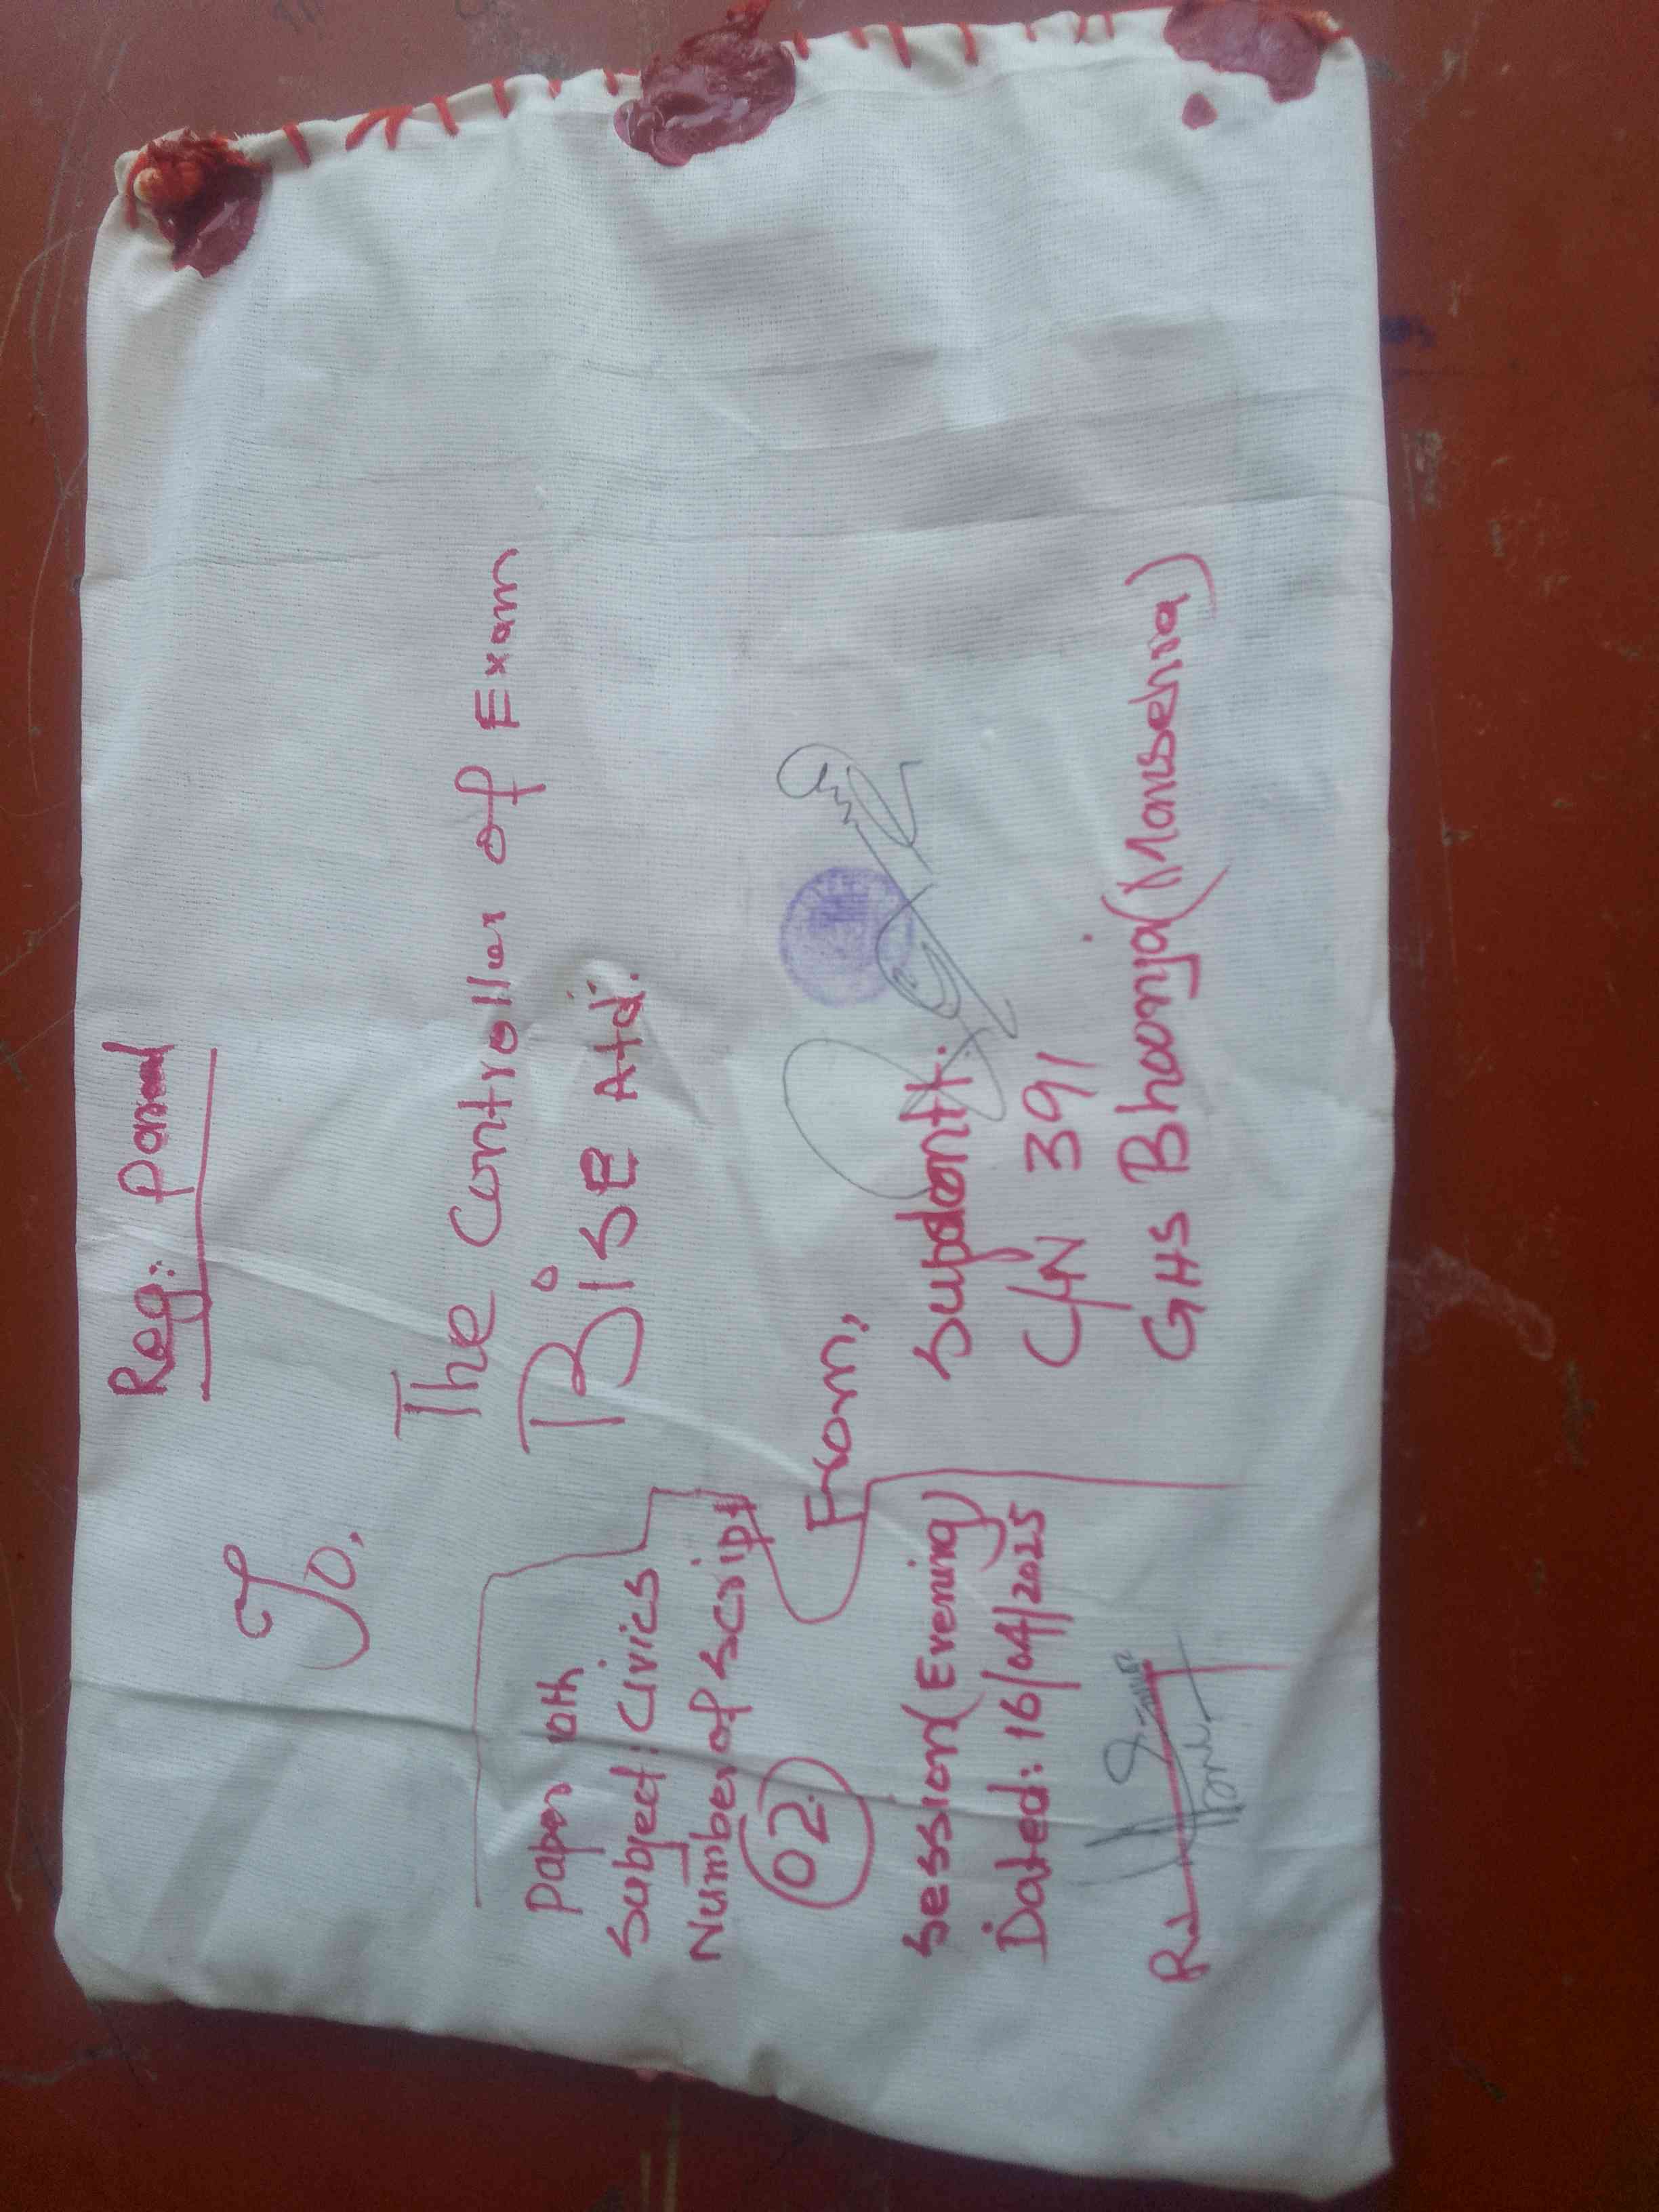 Reg: Parcel
To,
The Controller of Exam
BISE Atd:
From,
Supdentt.
C/N 391
GHS Bhoonja (Mansehra)
Paper 10th
Subject: Civics
Number of script
02
Session (Evening)
Dated: 16/04/2025